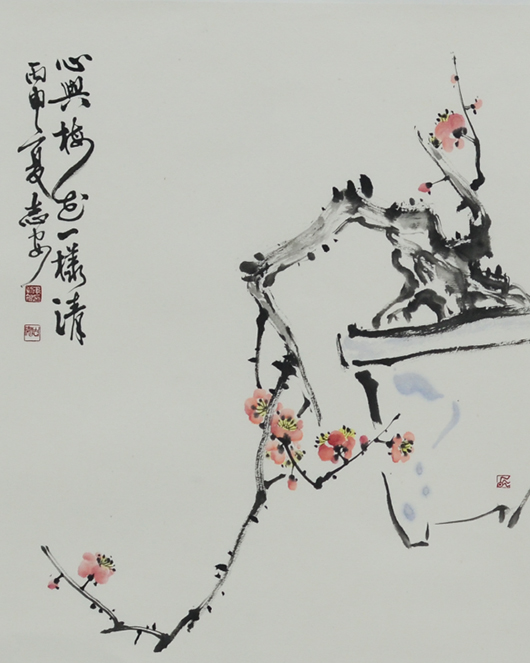 心與梅花一樣清
丙申夏志安